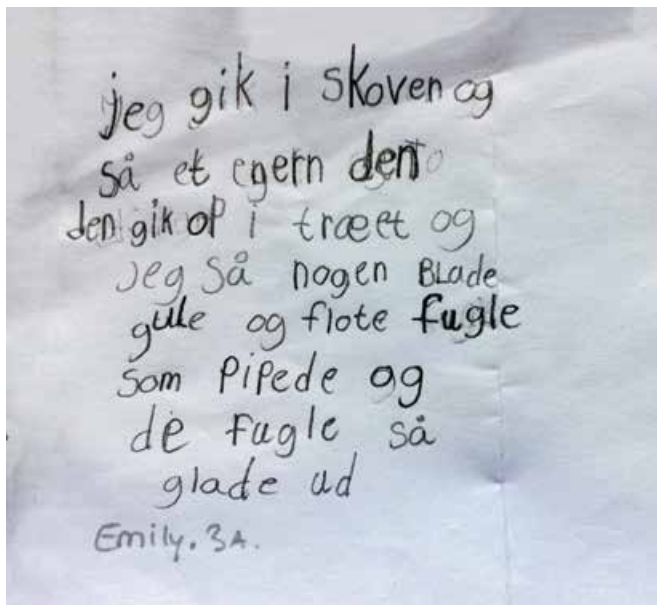 jeg gik i skoven og
så et egern den
den gik op i træet og
jeg så nogen BLade
gule og flote fugle
som pipede og
de fugle så
glade ud
Emily. 3A.